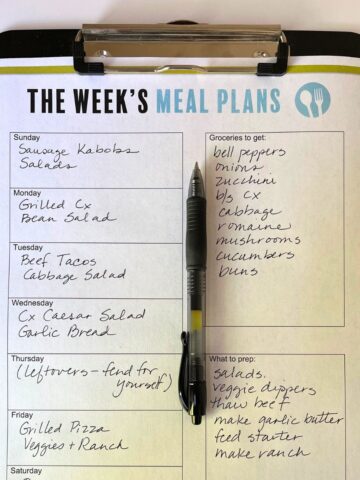 THE WEEK'S MEAL PLANS
Sunday
Sausage Kabobs
Salads
Monday
Grilled Cx
Bean Salad
Tuesday
Beef Tacos
Cabbage Salad
Wednesday
Cx Caesar Salad
Garlic Bread
Thursday
(leftovers - fend for
yourself)
Friday
Grilled Pizza
Veggies + Ranch
Saturday
Groceries to get:
bell peppers
onions
zucchini
b/s cx
cabbage
romaine
mushrooms
cucumbers
buns
What to prep:
salads.
veggie dippers
thaw beef
make garlic butter
feed starter
make ranch